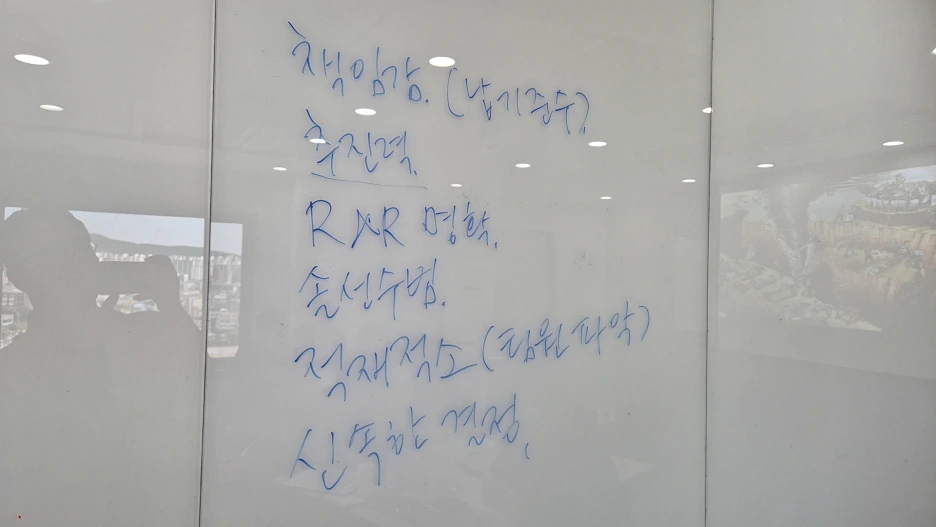 책임감. (납기준수)
추진력.
R&R 명확.
솔선수범.
적재적소 (팀원 파악)
신속한 결정.